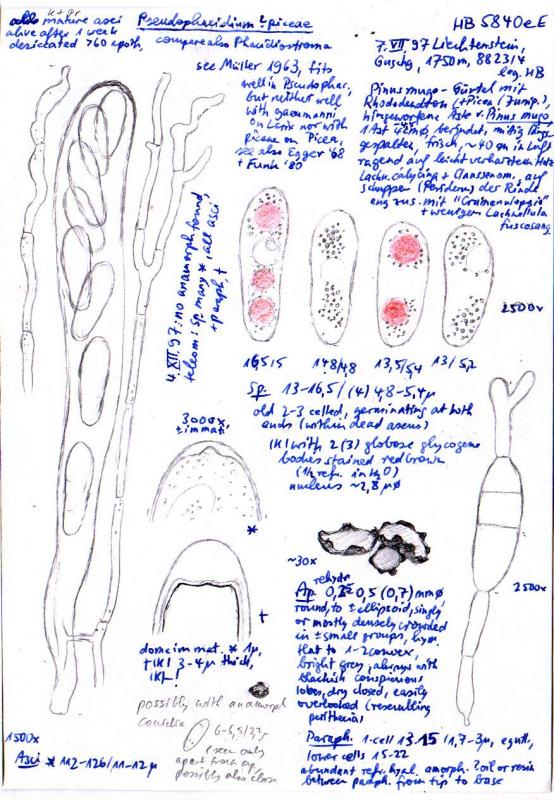 mature asci
alive after 1 week
desiccated >60 apoth.
Pseudophacidium piceae
compare also Phacidiostroma
HB 5840eE
see Müller 1963, fits
well in Pseudophac.,
but neither well
with gaeumanni
on Larix nor with
piceae on Picea,
see also Egger '68
+ Funk '80
7.VII.97 Liechtenstein,
1750m, 8823/4
leg. HB
Pinus mugo-Gürtel mit
Rhododendron (+Picea, Junip.)
hingeworfene Äste v. Pinus mugo
1 Ast berindet, mittig längs
gespalten, frisch, ~40 cm in Luft
ragend auf leicht verharztem Holz
Lachn. calycina +
Schuppen (Periderm) der Rinde
eng zus. mit
+ wenigen Lachnellula
fuscosang
4.XII.97: no anamorph found,
teleom. sp. many *, all asci
+ paraph. †
2500x
16,5/5
14,8/4,8
13,5/5,4
13/5,2
Sp. 13-16,5/(4) 4,8-5,4µ
old 2-3 celled, germinating at both
ends (within dead ascus)
IKI with 2(3) globose glycogene
bodies stained red brown
(½ refr. in H2O)
nucleus ~2,8µø
3000x
± immat.
*
†
dome im mat. * 1µ,
† IKI 3-4µ thick,
IKI-!
possibly with anamorph
conidia
6-6,5/
(seen only
apart from ap.
possibly also close
~30x
rehydr.
Ap. 0,5 (0,7) mmø
round, to ± ellipsoid, singly
or mostly densely crowded
in ± small groups, hym.
flat to 1-2 convex,
bright grey, always with
blackish conspicuous
lobes, dry closed, easily
overlooked (resembling
perithecia)
2500x
1500x
Asci * 112-126/11-12µ
Paraph. 1. cell 13-15/1,7-3µ, egutt.,
lower cells 15-22
abundant refr. hyal. amorph. ?oil or resin
between paraph. from tip to base